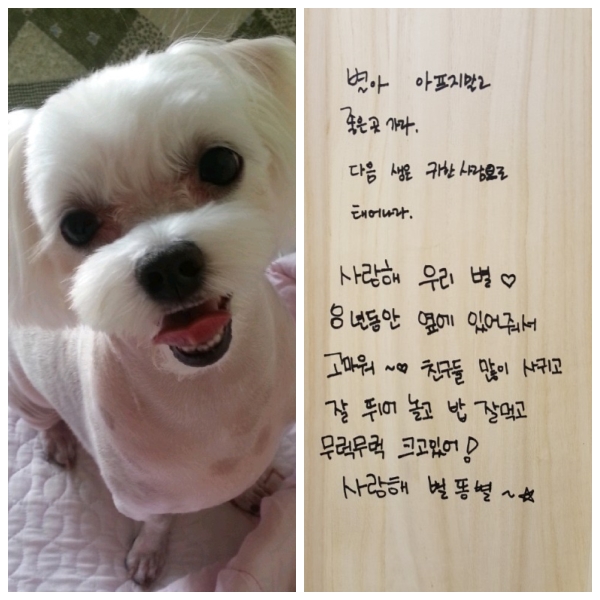 별아 아프지말고
좋은곳 가라.
다음 생은 귀한사람으로
태어나라.
사랑해 우리 별♡
8년동안 옆에 있어줘서
고마워 ~♡ 친구들 많이 사귀고
잘 뛰어 놀고 밥 잘먹고
무럭무럭 크고있어!
사랑해 별똥별~☆